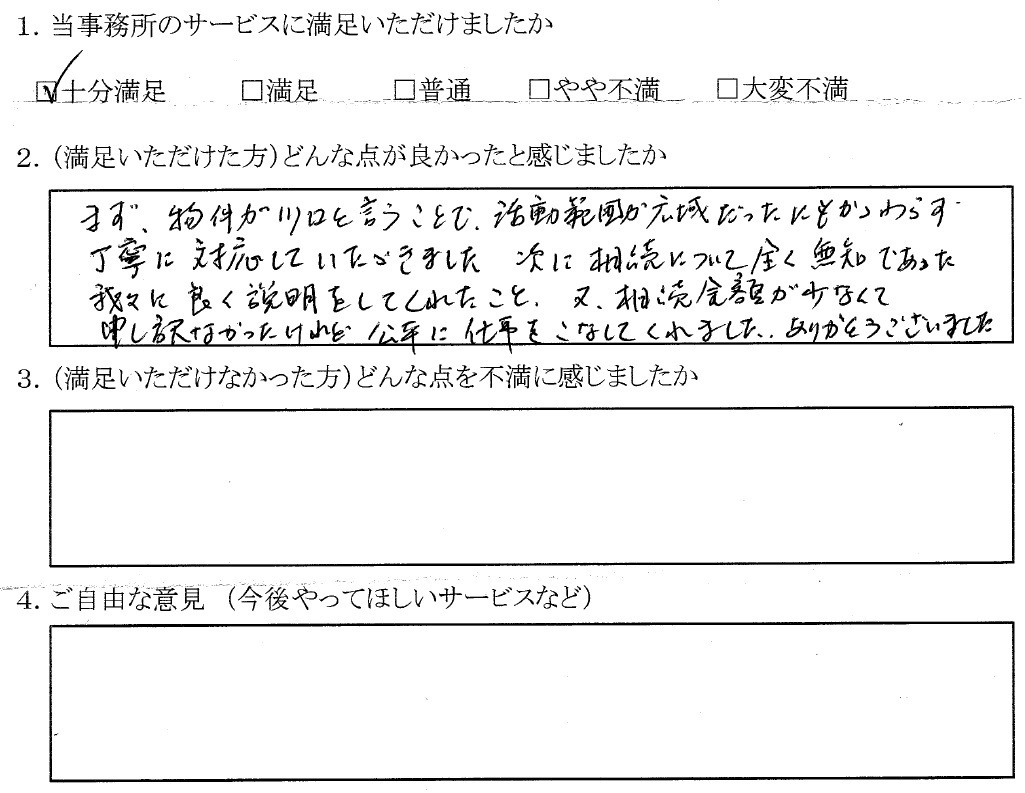 1. 当事務所のサービスに満足いただけましたか
☑十分満足 □満足 □普通 □やや不満 □大変不満
2. (満足いただけた方)どんな点が良かったと感じましたか
まず、物件が川口と言うことで、活動範囲が広域だったにもかかわらず
丁寧に対応していただきました 次に相続について全く無知であった
我々に良く説明をしてくれたこと、又、相続金額が少なくて
申し訳なかったけれど公平に仕事をこなしてくれました。ありがとうございました
3. (満足いただけなかった方)どんな点を不満に感じましたか
4. ご自由な意見 (今後やってほしいサービスなど)